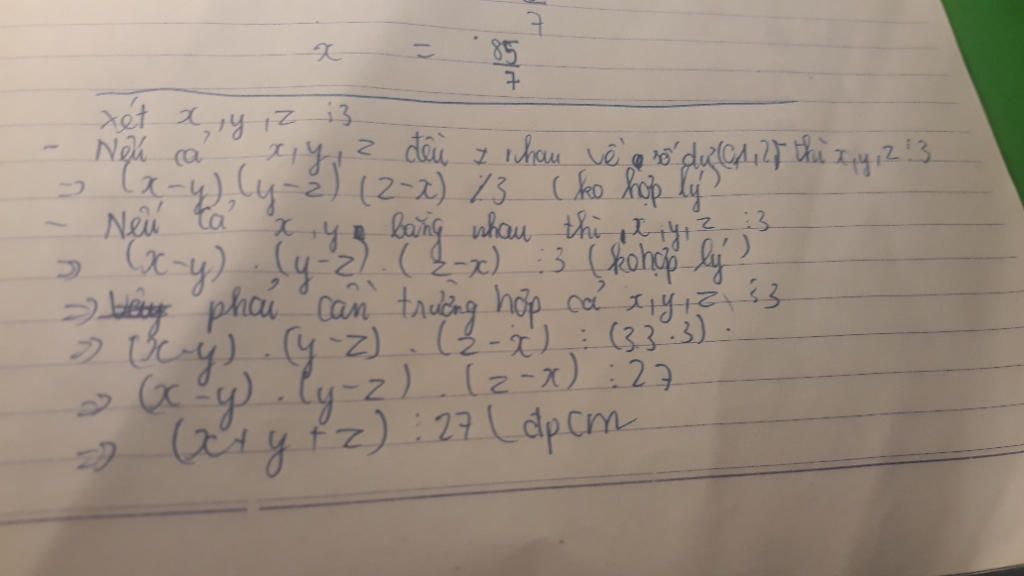 7
x = 85/7
xét x, y, z ⋮3
- Nếu cả x, y, z đều ≠ nhau về số dư (0,1,2) thì x, y, z ⋮3
=> (x-y) (y-z) (z-x) ⋮̸3 (ko hợp lý)
- Nếu cả x, y bằng nhau thì x, y, z ⋮3
=> (x-y) . (y-z) . (z-x) ⋮3 (ko hợp lý)
=> phải cần trường hợp cả x, y, z ⋮3
=> (x-y) . (y-z) . (z-x) ⋮ (33.3).
=> (x-y) . (y-z) . (z-x) ⋮27
=> (x+y+z) ⋮27 (dpcm